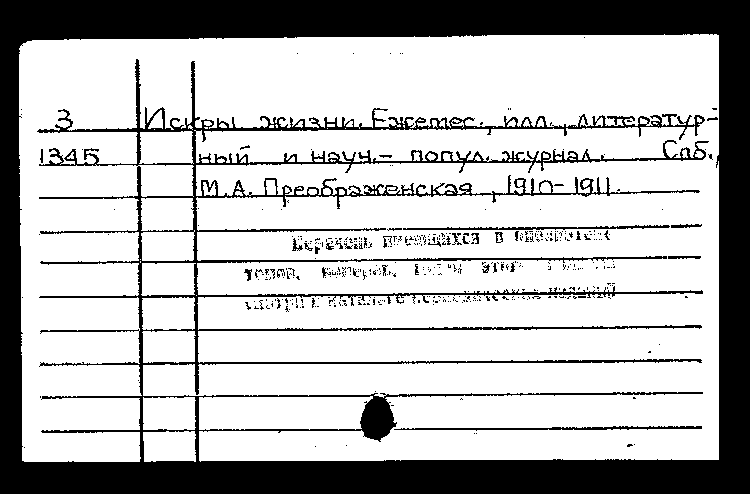 3 Искры жизни. Ежемес., илл., литератур-
1345 ный и науч.- попул. журнал. Спб.,
М.А. Преображенская, 1910-1911.
Перечень имеющихся в библиотеке
томов, номеров, годы этого
смотри в каталоге периодических изданий